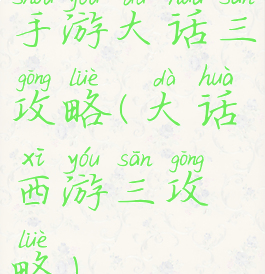 shǒu yóu dà huà sān
手游大话三
gōng lüè dà huà
攻略(大话
xī yóu sān gōng
西游三攻
lüè
略)